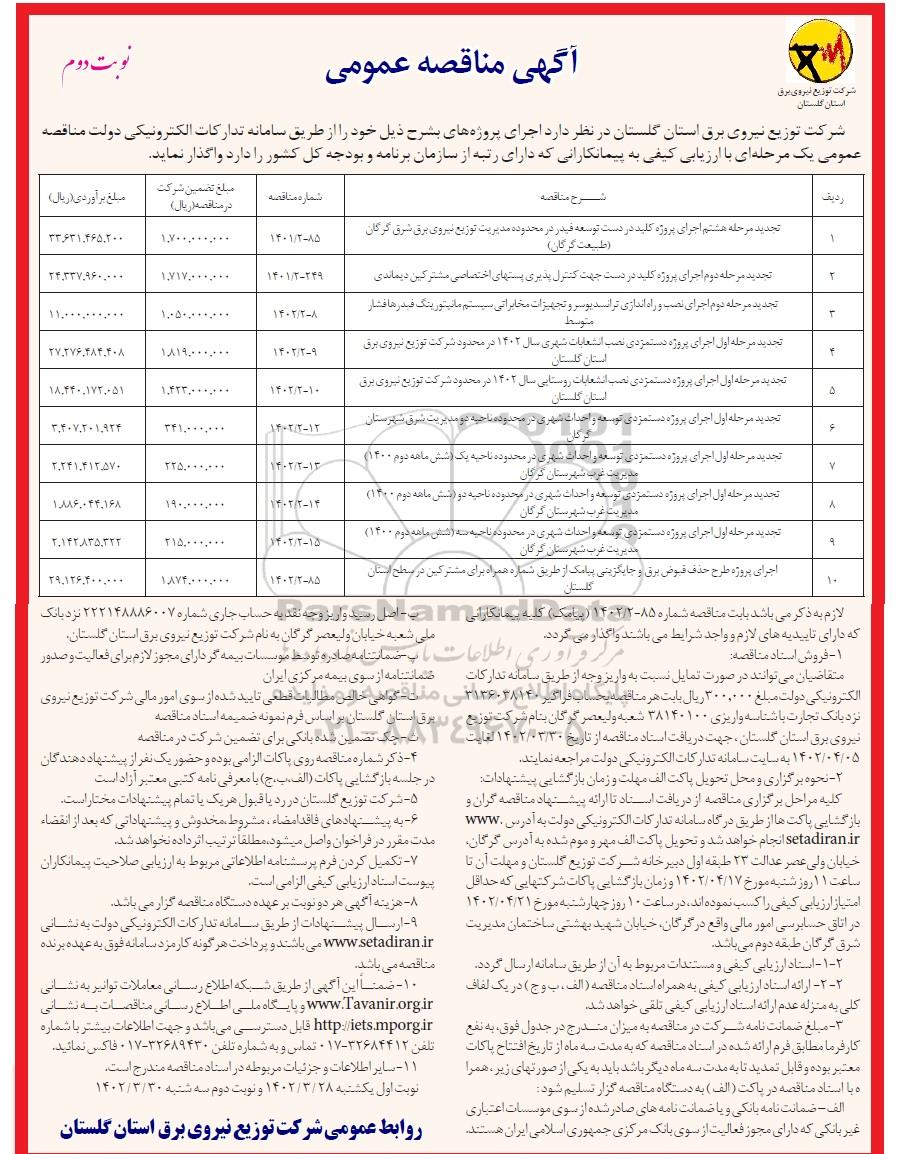 آگهی مناقصه عمومی
نوبت دوم
شرکت توزیع نیروی برق
استان گلستان
شرکت توزیع نیروی برق استان گلستان در نظر دارد اجرای پروژه‌های بشرح ذیل خود را از طریق سامانه تدارکات الکترونیکی دولت مناقصه
عمومی یک مرحله‌ای با ارزیابی کیفی به پیمانکارانی که دارای رتبه از سازمان برنامه و بودجه کل کشور را دارد واگذار نماید.
ردیف شرح مناقصه شماره مناقصه مبلغ تضمین شرکت در مناقصه (ریال) مبلغ برآوردی (ریال)
۱ تجدید مرحله هشتم اجرای پروژه کلید در دست توسعه فیدر در محدوده مدیریت توزیع نیروی برق شرق گرگان (طبیعت گرگان) ۱۴۰۱/۲-۸۵ ۱.۷۰۰.۰۰۰.۰۰۰ ۳۳.۶۳۱.۴۶۵.۲۰۰
۲ تجدید مرحله دوم اجرای پروژه کلید در دست جهت کنترل پذیری پستهای اختصاصی مشترکین دیماندی ۱۴۰۱/۲-۲۴۹ ۱.۷۱۷.۰۰۰.۰۰۰ ۲۴.۳۳۷.۹۶۰.۰۰۰
۳ تجدید مرحله دوم اجرای نصب و راه اندازی ترانسدیوسر و تجهیزات مخابراتی سیستم مانیتورینگ فیدرها فشار متوسط ۱۴۰۲/۲-۸ ۱.۰۵۰.۰۰۰.۰۰۰ ۱۱.۰۰۰.۰۰۰.۰۰۰
۴ تجدید مرحله اول اجرای پروژه دستمزدی نصب انشعابات شهری سال ۱۴۰۲ در محدود شرکت توزیع نیروی برق استان گلستان ۱۴۰۲/۲-۹ ۱.۸۱۹.۰۰۰.۰۰۰ ۲۷.۲۷۶.۴۸۴.۴۰۸
۵ تجدید مرحله اول اجرای پروژه دستمزدی نصب انشعابات روستایی سال ۱۴۰۲ در محدود شرکت توزیع نیروی برق استان گلستان ۱۴۰۲/۲-۱۰ ۱.۴۲۳.۰۰۰.۰۰۰ ۱۸.۴۴۰.۱۷۲.۰۵۱
۶ تجدید مرحله اول اجرای پروژه دستمزدی توسعه و احداث شهری در محدوده ناحیه دو مدیریت شرق شهرستان گرگان ۱۴۰۲/۲-۱۲ ۳۴۱.۰۰۰.۰۰۰ ۳.۴۰۷.۲۰۱.۹۲۴
۷ تجدید مرحله اول اجرای پروژه دستمزدی توسعه و احداث شهری در محدوده ناحیه یک (شش ماهه دوم ۱۴۰۰) مدیریت غرب شهرستان گرگان ۱۴۰۲/۲-۱۳ ۲۲۵.۰۰۰.۰۰۰ ۲.۲۴۱.۴۱۲.۵۷۰
۸ تجدید مرحله اول اجرای پروژه دستمزدی توسعه و احداث شهری در محدوده ناحیه دو (شش ماهه دوم ۱۴۰۰) مدیریت غرب شهرستان گرگان ۱۴۰۲/۲-۱۴ ۱۹۰.۰۰۰.۰۰۰ ۱.۸۸۶.۰۴۴.۱۶۸
۹ تجدید مرحله اول اجرای پروژه دستمزدی توسعه و احداث شهری در محدوده ناحیه سه (شش ماهه دوم ۱۴۰۰) مدیریت غرب شهرستان گرگان ۱۴۰۲/۲-۱۵ ۲۱۵.۰۰۰.۰۰۰ ۲.۱۴۲.۸۳۵.۳۲۲
۱۰ اجرای پروژه طرح حذف قبوض برق و جایگزینی پیامک از طریق شماره همراه برای مشترکین در سطح استان گلستان ۱۴۰۲/۲-۸۵ ۱.۸۷۴.۰۰۰.۰۰۰ ۲۹.۱۲۶.۴۰۰.۰۰۰
لازم به ذکر می باشد بابت مناقصه شماره ۸۵-۱۴۰۲/۲ (پیامک) کلیه پیمانکارانی
که دارای تاییدیه های لازم و واجد شرایط می باشند واگذار می گردد.
۱-فروش اسناد مناقصه:
متقاضیان می‌توانند در صورت تمایل نسبت به واریز وجه از طریق سامانه تدارکات
الکترونیکی دولت مبلغ ۳۰۰,۰۰۰ ریال بابت هر مناقصه بحساب فراگیر ۳۱۳۶۰۳۸۱۴۰
نزد بانک تجارت با شناسه واریزی ۳۸۱۴۰۱۰۰ شعبه ولیعصر گرگان بنام شرکت توزیع
نیروی برق استان گلستان ، جهت دریافت اسناد مناقصه از تاریخ ۱۴۰۲/۰۳/۳۰ لغایت
۱۴۰۲/۰۴/۰۵ به سایت سامانه تدارکات الکترونیکی دولت مراجعه نمایند.
۲-نحوه برگزاری و محل تحویل پاکت الف مهلت و زمان بازگشایی پیشنهادات:
کلیه مراحل برگزاری مناقصه از دریافت اسناد تا ارائه پیشنهاد مناقصه گران و
بازگشایی پاکت ها از طریق درگاه سامانه تدارکات الکترونیکی دولت به آدرس www.
setadiran.ir انجام خواهد شد و تحویل پاکت الف مهر و موم شده به آدرس گرگان،
خیابان ولی عصر عدالت ۲۳ طبقه اول دبیرخانه شرکت توزیع گلستان و مهلت آن تا
ساعت ۱۱ روز شنبه مورخ ۱۴۰۲/۰۴/۱۷ و زمان بازگشایی پاکات شرکتهایی که حداقل
امتیاز ارزیابی کیفی را کسب نموده اند، در ساعت ۱۰ روز چهارشنبه مورخ ۱۴۰۲/۰۴/۲۱
در اتاق حسابرسی امور مالی واقع در گرگان، خیابان شهید بهشتی ساختمان مدیریت
شرق گرگان طبقه دوم می‌باشد.
۲-۱-اسناد ارزیابی کیفی و مستندات مربوط به آن از طریق سامانه ارسال گردد.
۲-۲- ارائه اسناد ارزیابی کیفی به همراه اسناد مناقصه (الف ، ب و ج) در یک لفاف
کلی به منزله عدم ارائه اسناد ارزیابی کیفی تلقی خواهد شد.
۳-مبلغ ضمانت نامه شرکت در مناقصه به میزان مندرج در جدول فوق، به نفع
کارفرما مطابق فرم ارائه شده در اسناد مناقصه که به مدت سه ماه از تاریخ افتتاح پاکات
معتبر بوده و قابل تمدید تا به مدت سه ماه دیگر باشد باید به یکی از صورتهای زیر ، همرا
ه با اسناد مناقصه در پاکت (الف) به دستگاه مناقصه گزار تسلیم شود :
الف-ضمانت نامه بانکی و یا ضمانت نامه های صادر شده از سوی موسسات اعتباری
غیر بانکی که دارای مجوز فعالیت از سوی بانک مرکزی جمهوری اسلامی ایران هستند.
ب-اصل رسید واریز وجه نقد به حساب جاری شماره ۲۲۲۱۴۸۸۸۶۰۰۷ نزد بانک
ملی شعبه خیابان ولیعصر گرگان به نام شرکت توزیع نیروی برق استان گلستان.
پ-ضمانتنامه صادره توسط موسسات بیمه گر دارای مجوز لازم برای فعالیت و صدور
ضمانتنامه از سوی بیمه مرکزی ایران
ت-گواهی خالص مطالبات قطعی تایید شده از سوی امور مالی شرکت توزیع نیروی
برق استان گلستان بر اساس فرم نمونه ضمیمه اسناد مناقصه
ث-چک تضمین شده بانکی برای تضمین شرکت در مناقصه
۴-ذکر شماره مناقصه روی پاکات الزامی بوده و حضور یک نفر از پیشنهاد دهندگان
در جلسه بازگشایی پاکات (الف،ب،ج) با معرفی نامه کتبی معتبر آزاد است
۵-شرکت توزیع گلستان در رد یا قبول هر یک یا تمام پیشنهادات مختار است.
۶-به پیشنهادهای فاقد امضاء ، مشروط،مخدوش و پیشنهاداتی که بعد از انقضاء
مدت مقرر در فراخوان واصل میشود،مطلقاً ترتیب اثر داده نخواهد شد.
۷- تکمیل کردن فرم پرسشنامه اطلاعاتی مربوط به ارزیابی صلاحیت پیمانکاران
پیوست اسناد ارزیابی کیفی الزامی است.
۸-هزینه آگهی هر دو نوبت بر عهده دستگاه مناقصه گزار می باشد.
۹-ارسال پیشنهادات از طریق سامانه تدارکات الکترونیکی دولت به نشانی
www.setadiran.ir می باشند و پرداخت هرگونه کارمزد سامانه فوق به عهده برنده
مناقصه می باشد.
۱۰- ضمناً این آگهی از طریق شبکه اطلاع رسانی معاملات توانیر به نشانی
www.Tavanir.org.ir و پایگاه ملی اطلاع رسانی مناقصات به نشانی
http://iets.mporg.ir قابل دسترسی می‌باشد و جهت اطلاعات بیشتر با شماره
تلفن ۳۲۶۸۴۴۱۲-۰۱۷ تماس و به شماره تلفن ۳۲۶۸۹۴۳۰-۰۱۷ فاکس نمائید.
۱۱-سایر اطلاعات و جزئیات مربوطه در اسناد مناقصه مندرج است.
نوبت اول یکشنبه ۱۴۰۲/۳/۲۸ و نوبت دوم سه شنبه ۱۴۰۲/۳/۳۰
روابط عمومی شرکت توزیع نیروی برق استان گلستان
ParsNamadData